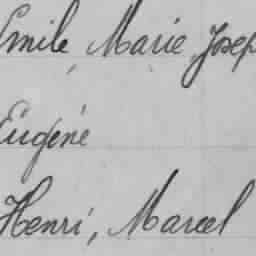 Emile, Marie, Josep
Eugène
Henri, Marcel